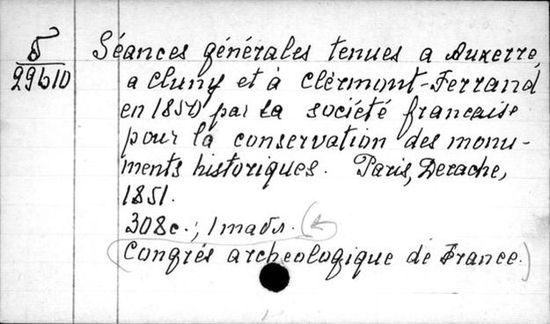 Б
29610
Séances générales tenues a Auxerre,
a Cluny et à Clermont-Ferrand
en 1850 par la société française
pour la conservation des monu-
ments historiques. Paris, Derache,
1851.
308c.; 1 табл.
(Congrés archeologique de France.)